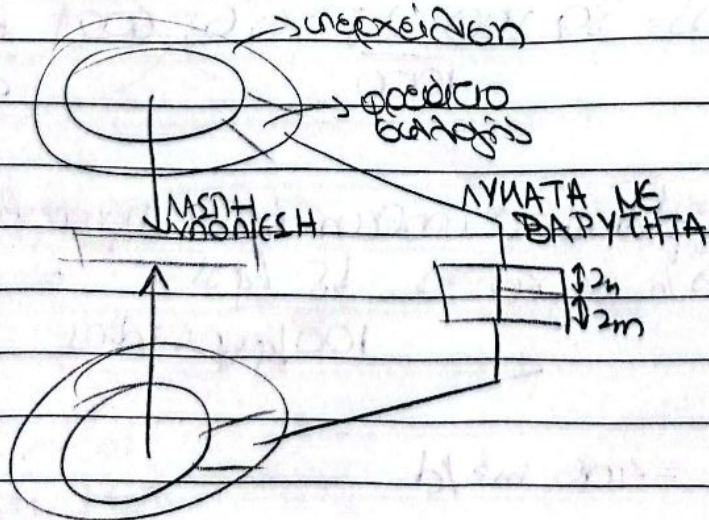 υπερχείλιση
φρεάτιο
συλλογής
ΛΑΣΠΗ
ΥΠΟΠΙΕΣΗ
ΛΥΜΑΤΑ ΜΕ
ΒΑΡΥΤΗΤΑ
2m
2m